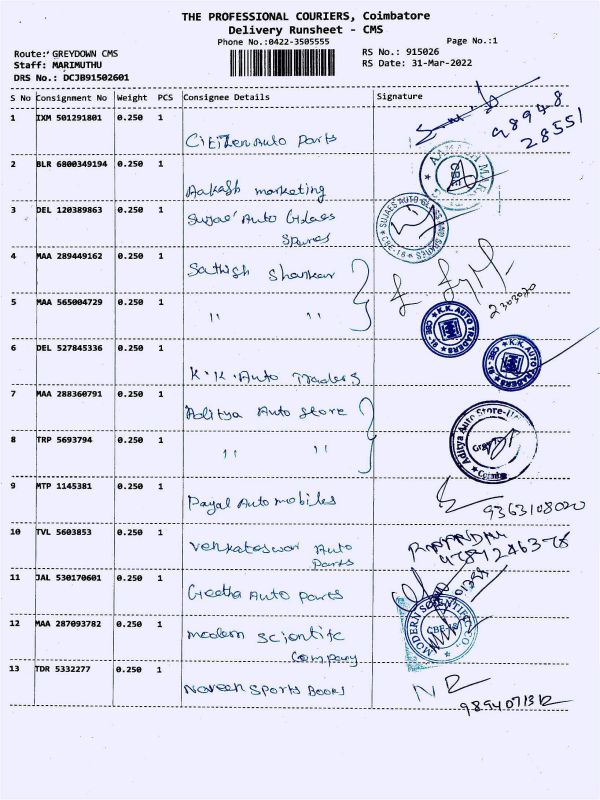 THE PROFESSIONAL COURIERS, Coimbatore
Delivery Runsheet - CMS
Phone No.:0422-3505555
Page No.:1
Route: GREYDOWN CMS
RS No.: 915026
Staff: MARIMUTHU
RS Date: 31-Mar-2022
DRS No.: DCJB91502601
S No Consignment No Weight PCS Consignee Details Signature
1 IXM 501291801 0.250 1 Citizen Auto Parts 98948
28551
2 BLR 6800349194 0.250 1 Aakash marketing
CBE
3 DEL 120389863 0.250 1 Sujae' Auto Glass
Spares
SUJAES AUTO GLASS AND SPARES
* CBE-18 *
4 MAA 289449162 0.250 1 Sathish Shankar
5 MAA 565004729 0.250 1 '' ''
K.K. AUTO TRADERS
CBE - 18
6 DEL 527845336 0.250 1 K.K. Auto Traders
K.K. AUTO TRADERS
CBE - 18
7 MAA 288360791 0.250 1 Aditya Auto Store
8 TRP 5693794 0.250 1 '' ''
Aditya Auto Store
9 MTP 1145381 0.250 1 Payal Automobiles 9363108020
10 TVL 5603853 0.250 1 Venkateswar Auto
Parts
11 JAL 530170601 0.250 1 Geetha Auto parts
12 MAA 287093782 0.250 1 modern Scientific
Company
MODERN SCIENTIFIC CO.,
CBE-18
13 TDR 5332277 0.250 1 Naveen Sports Books NR
9894071312